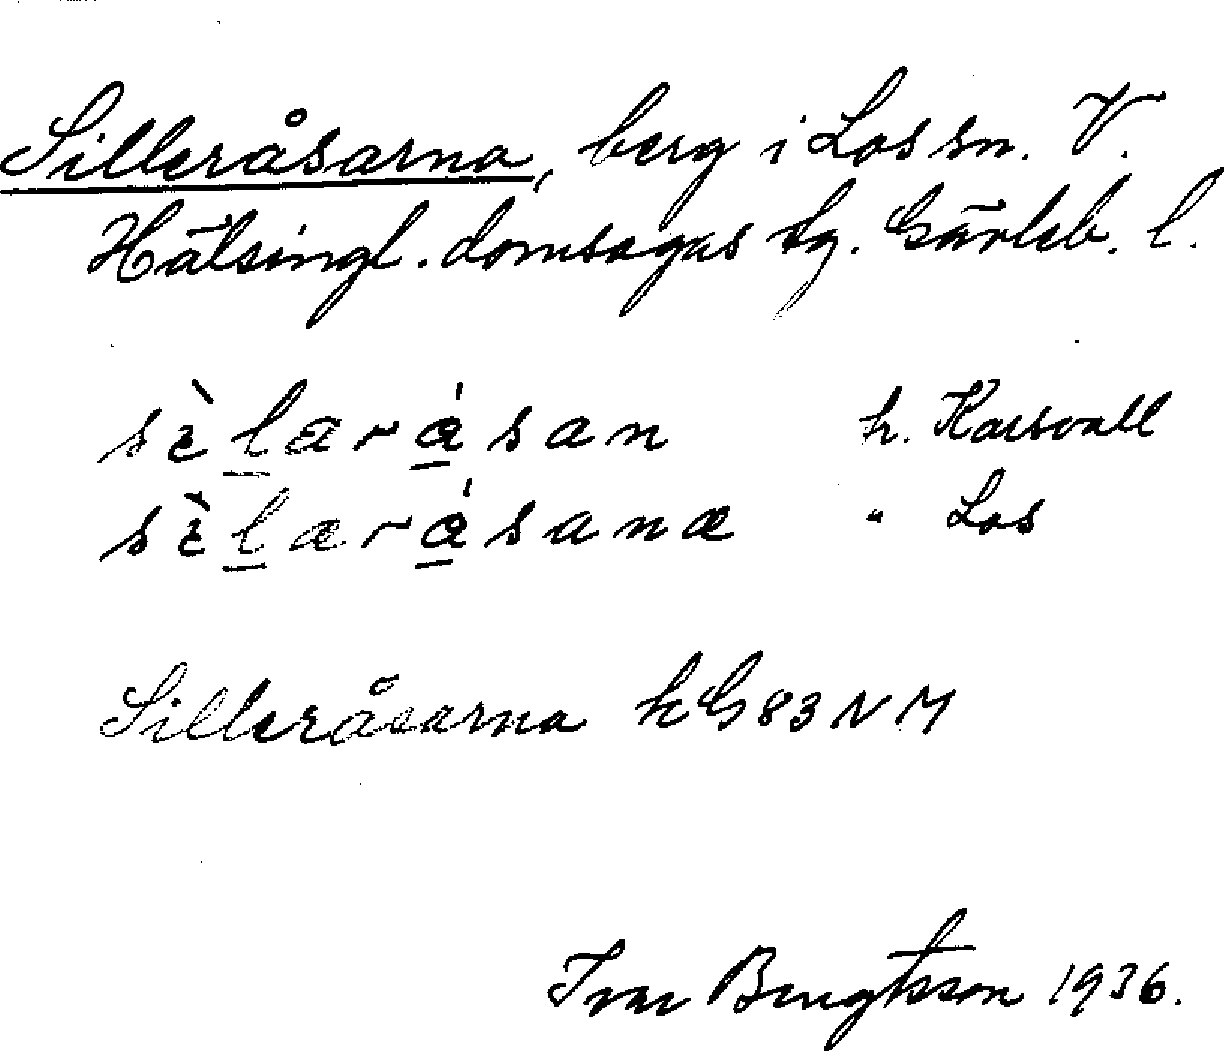 Silleråsarna, berg i Los sn. V.
Hälsingl. domsagas tg. Gävleb. l.
sὲlæråsan h. Karsvall
sὲlæråsanæ " Los
Silleråsarna kG 83 N M
Ivar Bengtsson 1936.